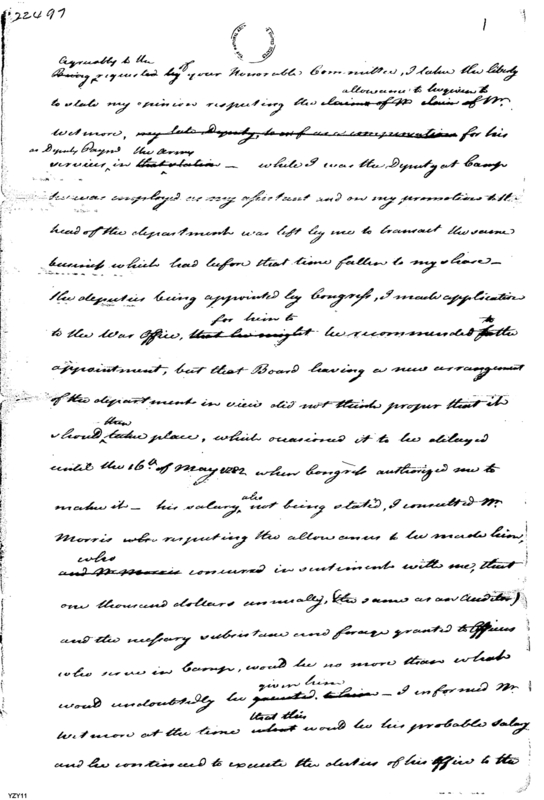 22497
1
agreeably to the
Being requested by of your Honorable Committee, I take the liberty
allowance to be given to
to state my opinion respecting the claim of Mr
Wetmore, my late Deputy, as a compensation for his
as Deputy Paymr the Army
services, in that station — while I was the Deputy at Camp
he was employed as my assistant and on my promotion to the
head of the department was left by me to transact the same
business which had before that time fallen to my share —
the deputies being appointed by Congress, I made application
for him to
to the War Office, that he might be recommended to the
appointment, but that Board having a new arrangement
of the department in view did not think proper that it
then
should take place, which occasioned it to be delayed
until the 16th of May 1782 when Congress authorized me to
also
make it — his salary, not being stated, I consulted Mr
Morris who respecting the allowances to be made him,
who
and Mr Morris concurred in sentiments with me, that
one thousand dollars annually, (the same as an Auditor)
and the nessary subsistance and forage granted to Officers
who serve in Camp, would be no more than what
given him
would undoubtedly be granted to him — I informed Mr
that this
Wetmore at the time what would be his probable salary
and he continued to execute the duties of his office to the
YZY11